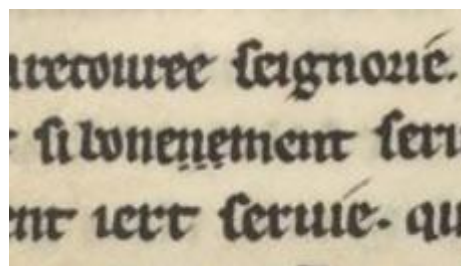 retouree seignorié.
si bonenement seru
ent iert seruie. qu